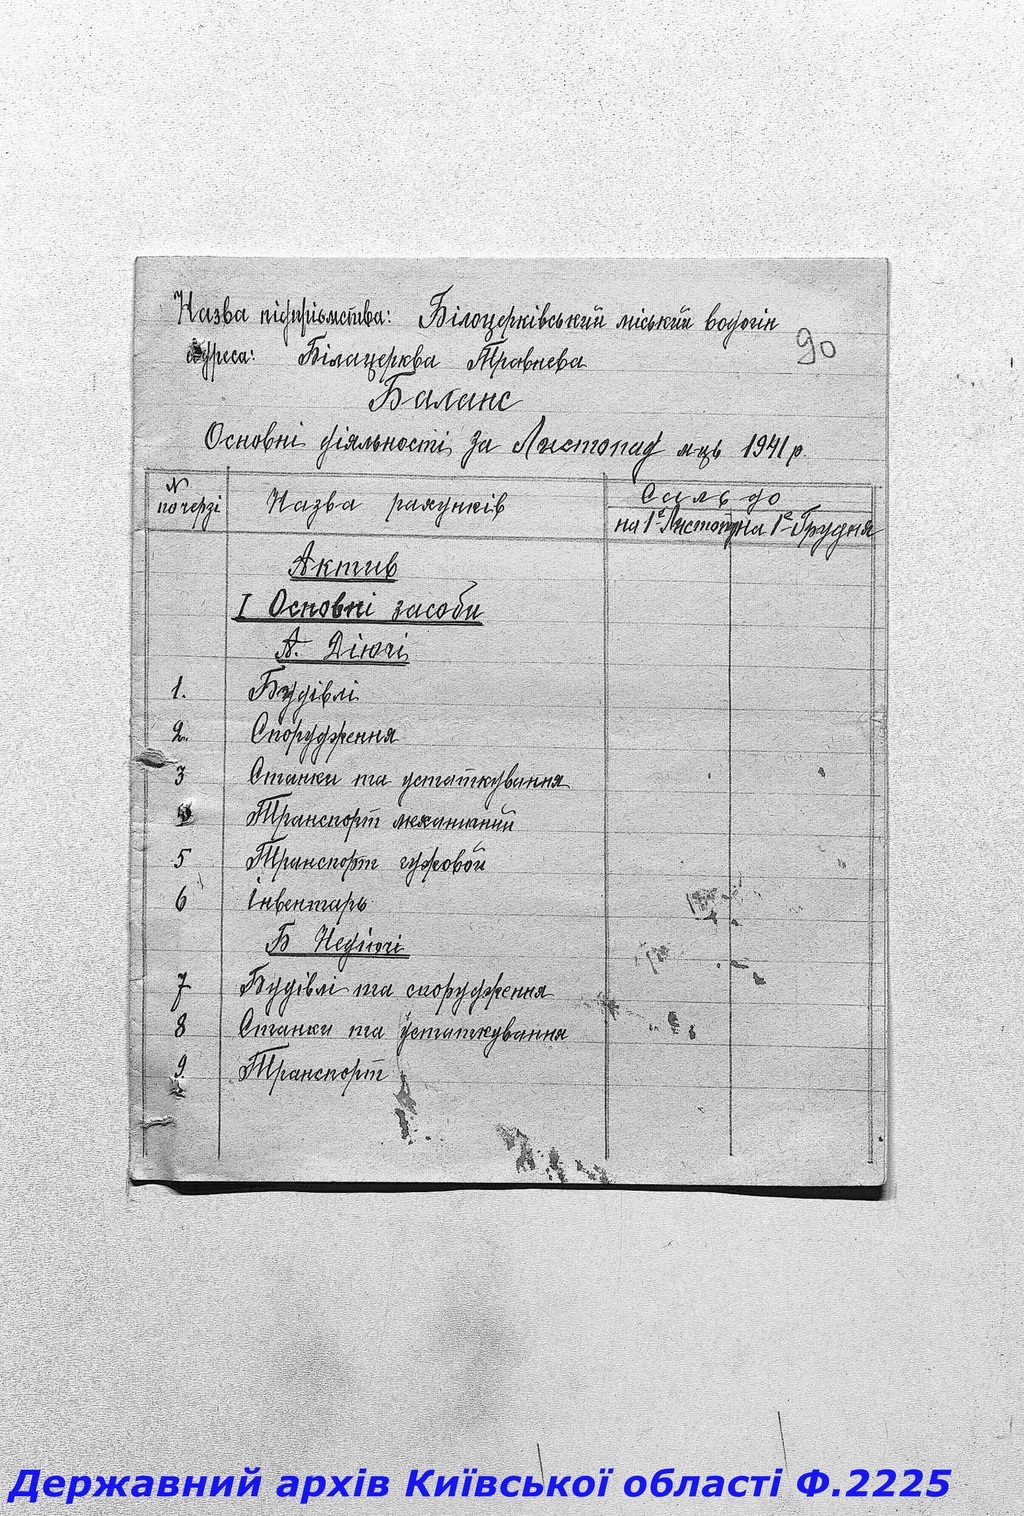 Назва підприємства: Білоцерківський міський водогін
адреса: Білацерква Травнева
90
Баланс
Основні діяльності за Листопад м-ць 1941 р.
N по черзі
Назва рахунків
Сальдо
на 1е Листоп. на 1е Грудня
Актив
I Основні засоби
А. Діючі
1. Будівлі
2. Спорудження
3 Станки та устаткування
4 Транспорт механичний
5 Транспорт гужовой
6 Інвентарь
Б Недіючі
7 Будівлі та спорудження
8 Станки та устаткування
9. Транспорт
Державний архів Київської області Ф.2225